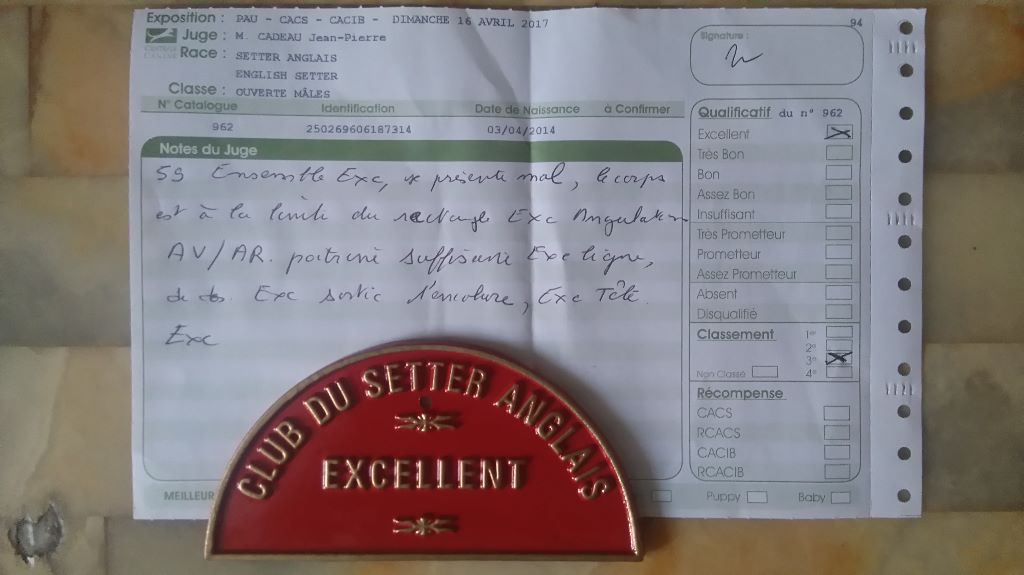 Exposition : PAU - CACS - CACIB - DIMANCHE 16 AVRIL 2017
94
Juge : M. CADEAU Jean-Pierre
Race : SETTER ANGLAIS
ENGLISH SETTER
Classe : OUVERTE MÂLES
Signature :
N° Catalogue Identification Date de Naissance à Confirmer
962 250269606187314 03/04/2014
Notes du Juge
Ensemble Exc, se présente mal, le corps
est à la limite du rectangle Exc Angulation
AV/AR. poitrine suffisante Exc ligne,
de dos. Exc sortie d'encolure, Exc Tête.
Exc
Qualificatif du n° 962
Excellent
Très Bon
Bon
Assez Bon
Insuffisant
Très Prometteur
Prometteur
Assez Prometteur
Absent
Disqualifié
Classement 1er
2e
3e
Non Classé 4e
Récompense
CACS
RCACS
CACIB
RCACIB
MEILLEUR Puppy Baby
CLUB DU SETTER ANGLAIS
EXCELLENT